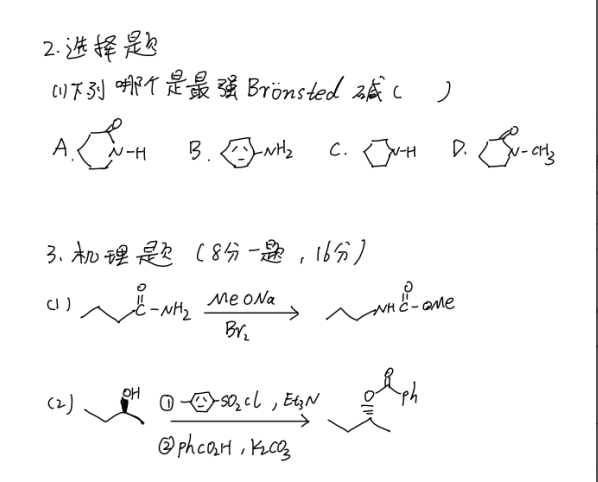 2.选择题
(1)下列哪个是最强Brönsted 碱( )
A. O N-H B. NH2 C. N-H D. O N-CH3
3.机理题(8分一题,16分)
(1) O C-NH2 MeONa Br2 NH C-OMe O
(2) OH ① SO2Cl, Et3N ② PhCO2H, K2CO3 O O Ph